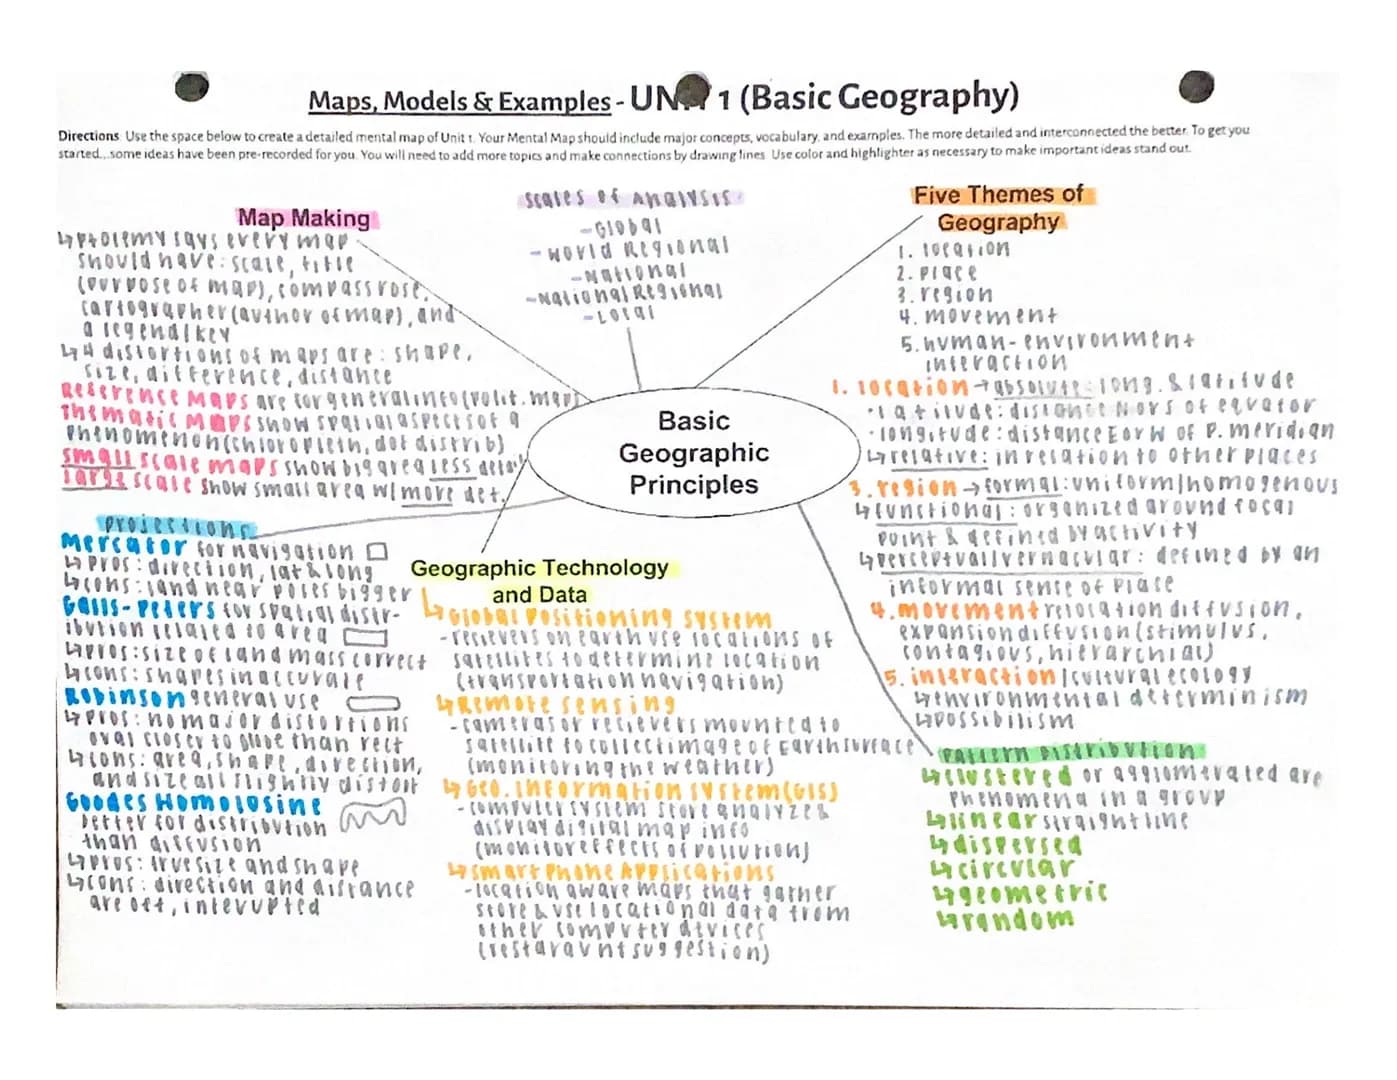 Maps, Models & Examples - UNIT 1 (Basic Geography)
Directions: Use the space below to create a detailed mental map of Unit 1. Your Mental Map should include major concepts, vocabulary, and examples. The more detailed and interconnected the better. To get you
started...some ideas have been pre-recorded for you. You will need to add more topics and make connections by drawing lines. Use color and highlighter as necessary to make important ideas stand out.
Map Making
↳Ptolemy says every map
should have: scale, title
(purpose of map), compass rose,
cartographer (author of map), and
a legend/key
↳4 distortions of maps are: shape,
size, difference, distance
Reference Maps are for general info (polit. map)
Thematic Maps show spatial aspects of a
phenomenon (chloropleth, dot distrib)
small scale maps show big area less detail
large scale show small area w/ more det.
Scales of Analysis
-Global
-World Regional
-National
-National Regional
-Local
Five Themes of
Geography
1. location
2. place
3. region
4. movement
5. human-environment
interaction
1. location → absolute: long. & latitude
·latitude: distance N or S of equator
·longitude: distance E or W of P. meridian
↳relative: in relation to other places
3. region → formal: uniform/homogenous
↳functional: organized around focal
point & defined by activity
↳perceptual/vernacular: defined by an
informal sense of place
4. movement relocation diffusion,
expansion diffusion (stimulus,
contagious, hierarchial)
5. interaction/cultural ecology
↳environmental determinism
↳possibilism
Basic
Geographic
Principles
projections
Mercator for navigation
↳pros: direction, lat & long
↳cons: land near poles bigger
Galls-Peters for spatial distr-
ibution related to area
↳pros: size of land mass correct
↳cons: shapes inaccurate
Robinson general use
↳pros: no major distortions
oval closer to globe than rect
↳cons: area, shape, direction,
and size all slightly distort
Goodes Homolosine
better for distribution
than diffusion
↳pros: true size and shape
↳cons: direction and distance
are off, interupted
Geographic Technology
and Data
↳Global Positioning System
-recievers on earth use locations of
satellites to determine location
(transportation navigation)
↳Remote sensing
-cameras or recievers mounted to
satellite to collect image of Earth surface
(monitoring the weather)
↳Geo. Information System (GIS)
-computer system store analyze &
display digital map info
(monitor effects of pollution)
↳Smart Phone Applications
-location aware maps that gather
store & use locational data from
other computer devices
(restaraunt suggestion)
Pattern Distribution
↳clustered or agglomerated are
phenomena in a group
↳linear straight line
↳dispersed
↳circular
↳geometric
↳random